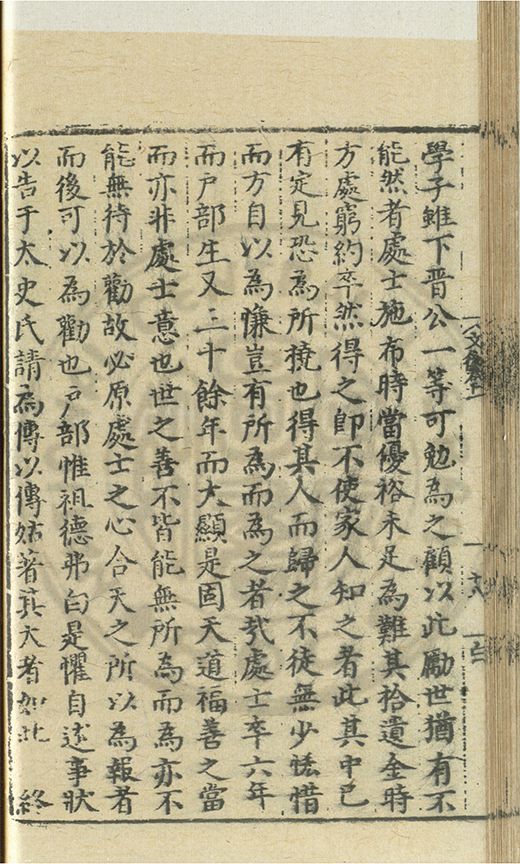 學子雖下晋公一等可勉為之顧以此勵世猶有不
能然者處士施布時當優裕未足為難其拾遺金時
方處窮約卒然得之即不使家人知之者此其中已
有定見恐為所撓也得其人而歸之不徒無少恡惜
而方自以為慊豈有所為而為之者哉處士卒六年
而戶部生又三十餘年而大顯是固天道福善之當
而亦非處士意也世之善不皆能無所為而為亦不
能無待於勸故必原處士之心合天之所以為報者
而後可以為勸也戶部惟祖德弗白是懼自述事狀
以告于太史氏請為傳以傳姑著其大者如此 終